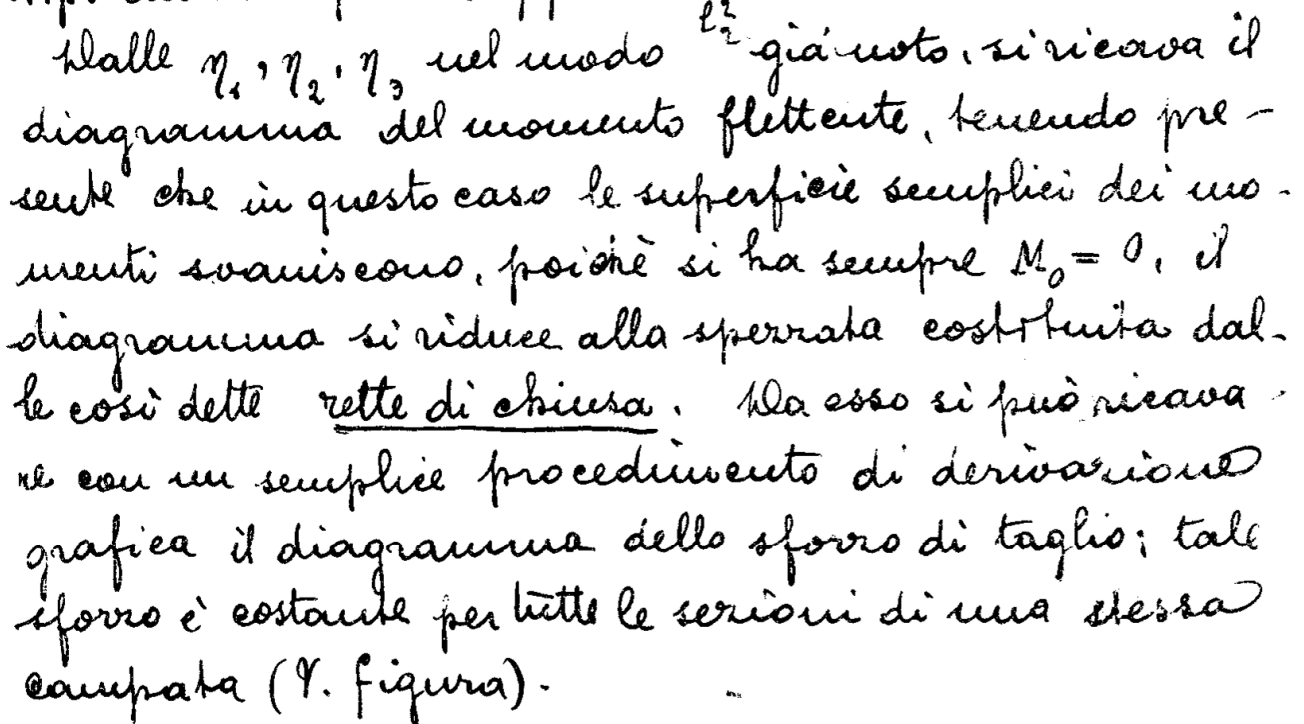 l₂²
Dalle η₁, η₂, η₃ nel modo già noto, si ricava il
diagramma del momento flettente, tenendo pre-
sente che in questo caso le superficie semplici dei mo-
menti svaniscono, poichè si ha sempre M₀ = 0, il
diagramma si riduce alla spezzata costituita dal-
le così dette rette di chiusa. Da esso si può ricava-
re con un semplice procedimento di derivazione
grafica il diagramma dello sforzo di taglio; tale
sforzo è costante per tutte le sezioni di una stessa
campata (V. figura).